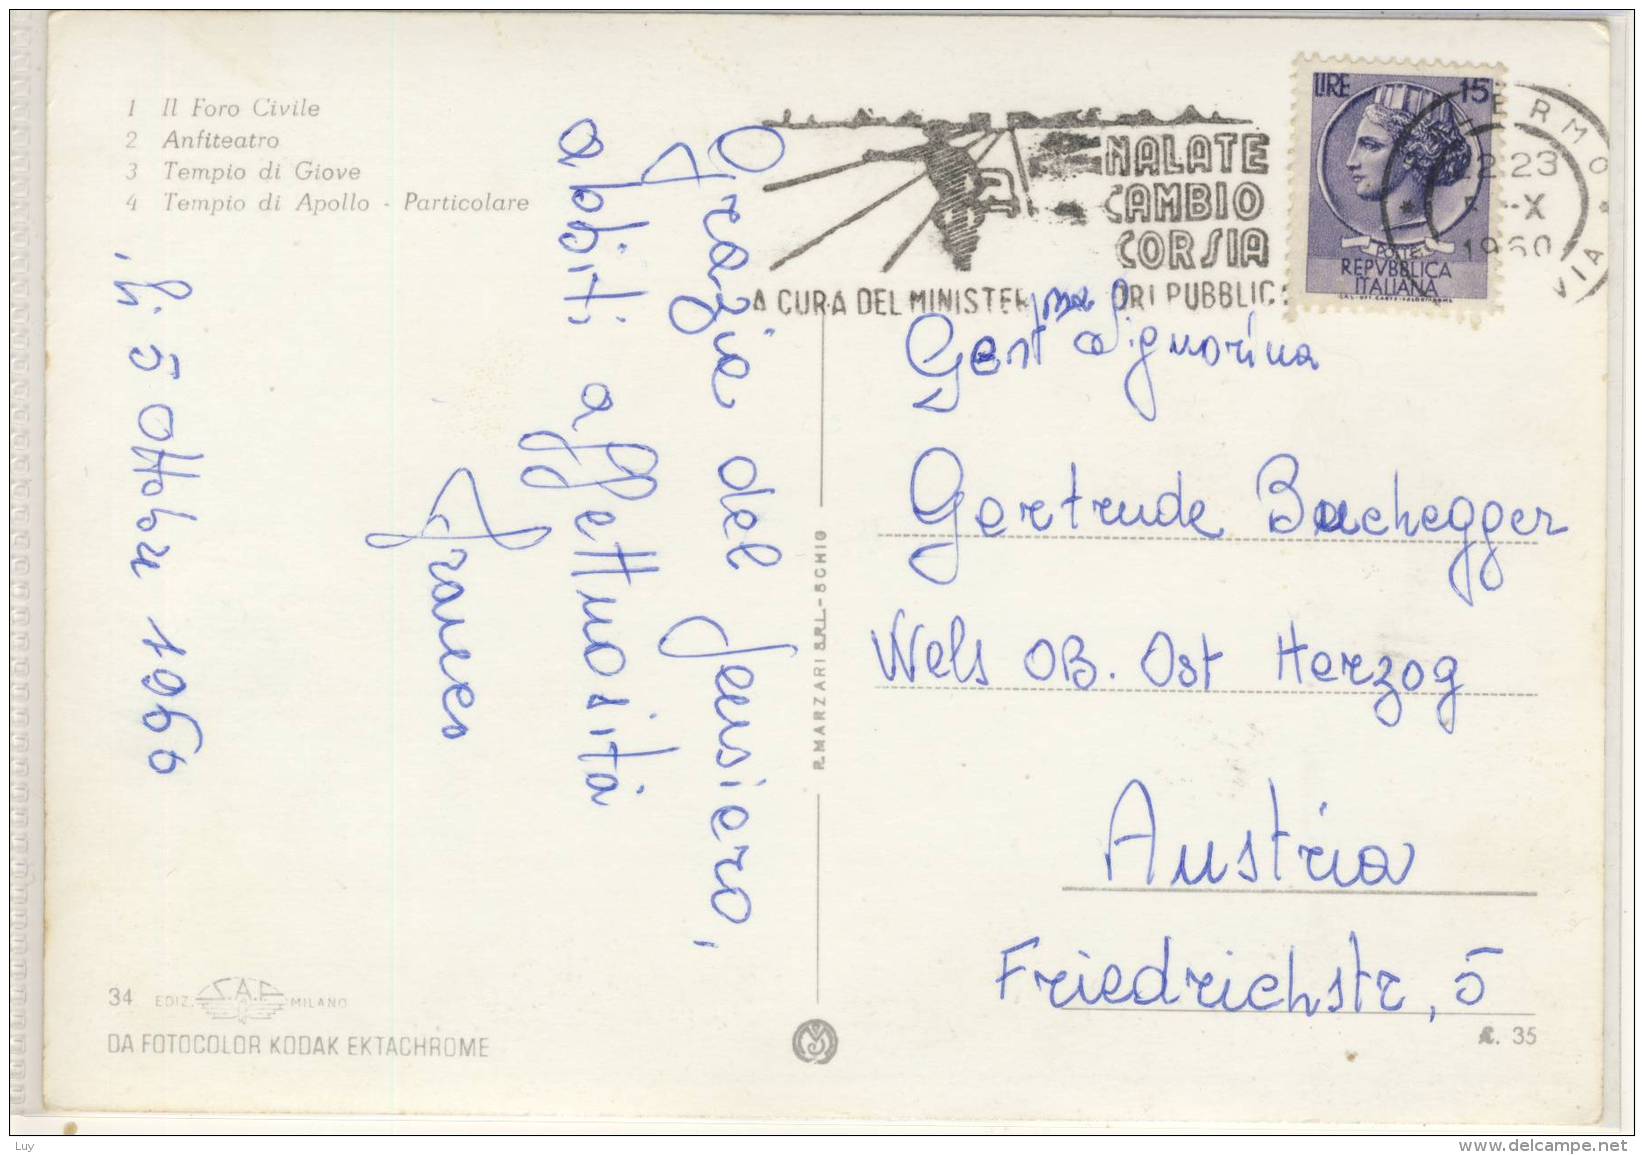 1 Il Foro Civile
2 Anfiteatro
3 Tempio di Giove
4 Tempio di Apollo - Particolare
Grazie del pensiero,
abbiti affettuosità
Franco
lì 5 Ottobre 1960
34 EDIZ. S.A.F. MILANO
DA FOTOCOLOR KODAK EKTACHROME
P. MARZARI S.R.L. - SCHIO
NALATE
CAMBIO
CORSIA
A CURA DEL MINISTER ORI PUBBLIC
LIRE 15
POSTE
REPVBBLICA
ITALIANA
ERMO
VIA
2.23
5-X
1960
Gent.ma Signorina
Gertrude Buchegger
Wels OB. Ost Herzog
Austria
Friedrichstr, 5
R. 35
Luy
www.delcampe.net